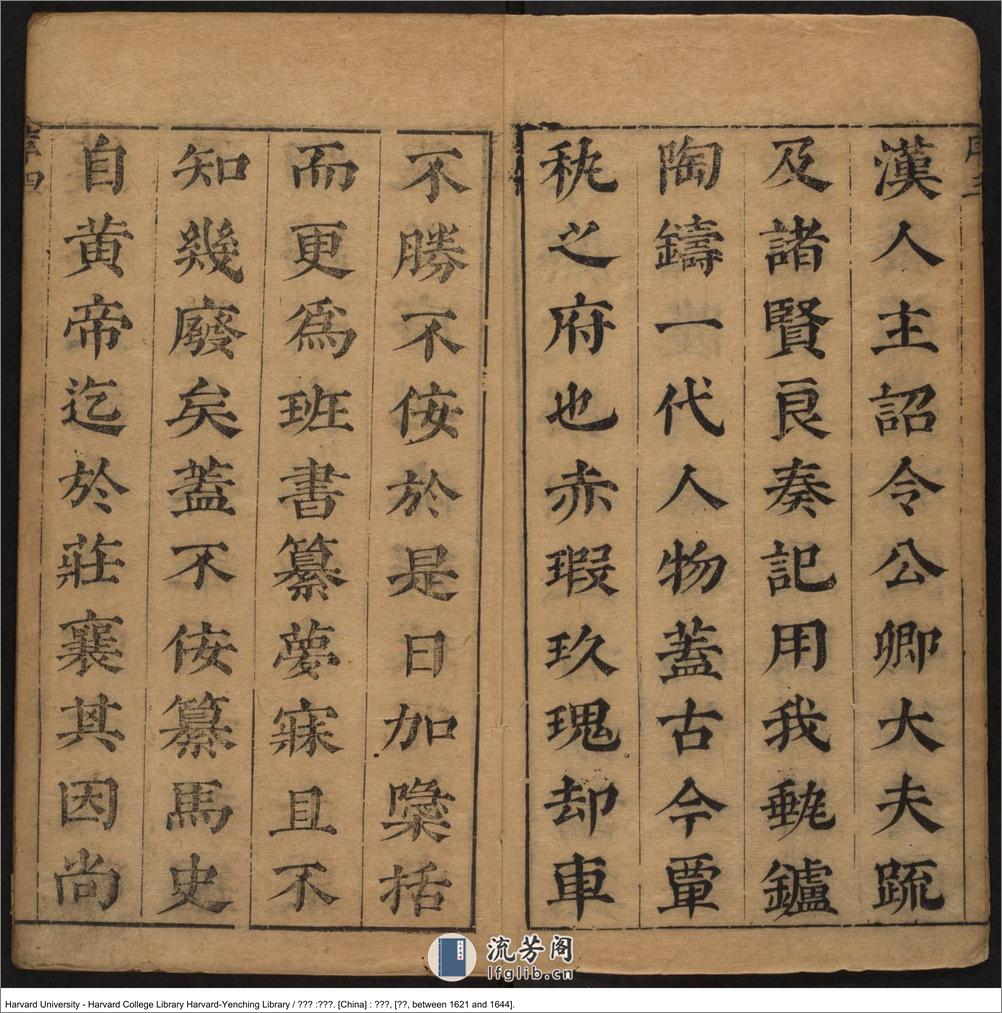 序三
漢人主詔令公卿大夫疏
及諸賢良奏記用我甄鑪
陶鑄一代人物蓋古今覃
秇之府也赤瑕玖瑰却車
不勝不佞於是日加檃括
而更爲班書纂夢寐且不
知幾廢矣蓋不佞纂馬史
自黄帝迄於莊襄其因尚
序四
流芳阁
lfglib.cn
Harvard University - Harvard College Library Harvard-Yenching Library / ??? :???. [China] : ???, [??, between 1621 and 1644].